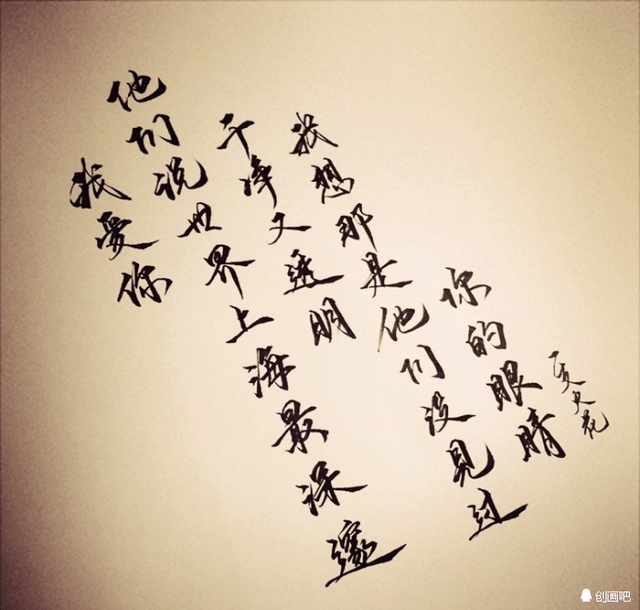 我爱你
他们说世界上海最深邃
干净又透明
我想那是他们没见过
你的眼睛
创画吧